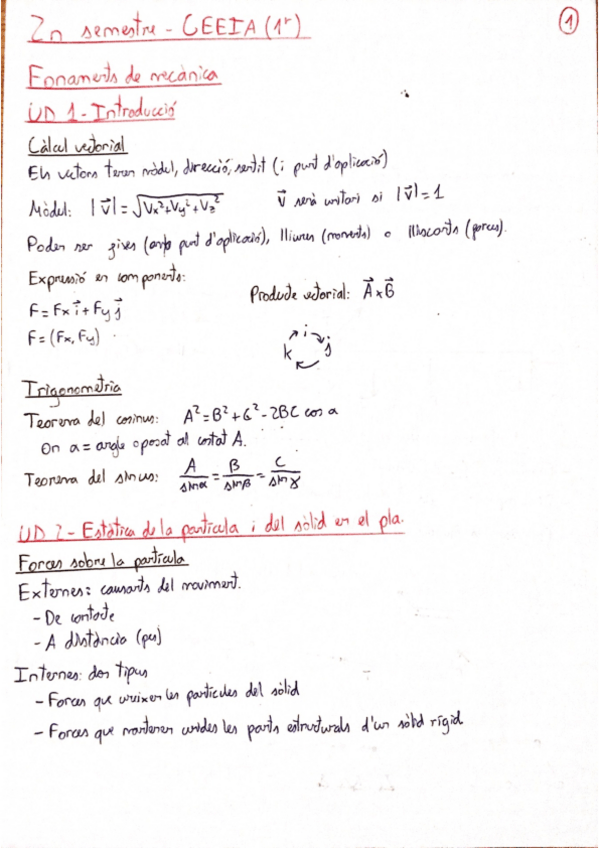 2n semestre - GEEIA (1r)
1
Fonaments de mecànica
UD 1 - Introducció
Càlcul vectorial
Els vectors tenen mòdul, direcció, sentit (i punt d'aplicació)
Mòdul: |v⃗| = √(Vx² + Vy² + Vz²)   v⃗ serà unitari si |v⃗| = 1
Poden ser fixes (amb punt d'aplicació), lliures (moments) o lliscants (forces).
Expressió en components:
Producte vectorial: A⃗ x B⃗
F = Fx i⃗ + Fy j⃗
F = (Fx, Fy)
i
k j
Trigonometria
Teorema del cosinus: A² = B² + C² - 2BC cos a
On a = angle oposat al costat A.
Teorema del sinus: A/sin α = B/sin β = C/sin γ
UD 2 - Estàtica de la partícula i del sòlid en el pla.
Forces sobre la partícula
Externes: causants del moviment.
- De contacte
- A distància (pes)
Internes: dos tipus
- Forces que uneixen les partícules del sòlid
- Forces que mantenen unides les parts estructurals d'un sòlid rígid